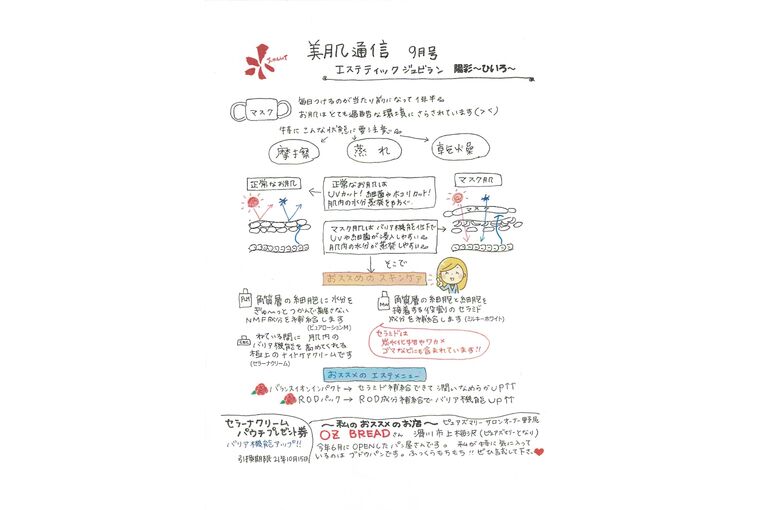 美肌通信 9月号
エステティック ジュビラン 陽彩〜ひいろ〜
マスク
毎日つけるのが当たり前になって1年半。
お肌はとても過酷な環境にさらされています(><)
特にこんな状態に要注意。
摩擦
蒸れ
乾燥
正常なお肌
正常なお肌は
UVカット!細菌やホコリカット!
肌内の水分蒸発をふせぐ。
マスク肌
マスク
マスク肌はバリア機能低下で
UVや細菌が浸入しやすい。
肌内の水分が蒸発しやすい。
そこで
おススメのスキンケア
角質層の細胞に水分を
ぎゅーっとつかんで離さない
NMF成分を補給します
(ピュアローションM)
角質層の細胞と細胞を
接着する役割のセラミド
成分を補給します (ミルキーホワイト)
ねている間に肌内の
バリア機能を高めてくれる
極上のナイトケアクリームです
(セラーナクリーム)
セラミドは
炭水化物やワカメ
ゴマなどにも含まれています!!
おススメのエステメニュー
バランスイオンインパクト → セラミド補給できて潤いなめらかUP↑↑
RODパック → ROD成分補給でバリア機能UP↑↑
セラーナクリーム
パウチプレゼント券
バリア機能アップ!!
引換期限 21年10月15日
〜私のおススメのお店〜 ピュアズマリー サロンオーナー
OZ BREADさん 滑川市上梅沢 (ピュアズマリーとなり)
今年6月にOPENしたパン屋さんです。私が特に気に入って
いるのはブドウパンです。ふっくらもちもち!!ぜひ試して下さい。